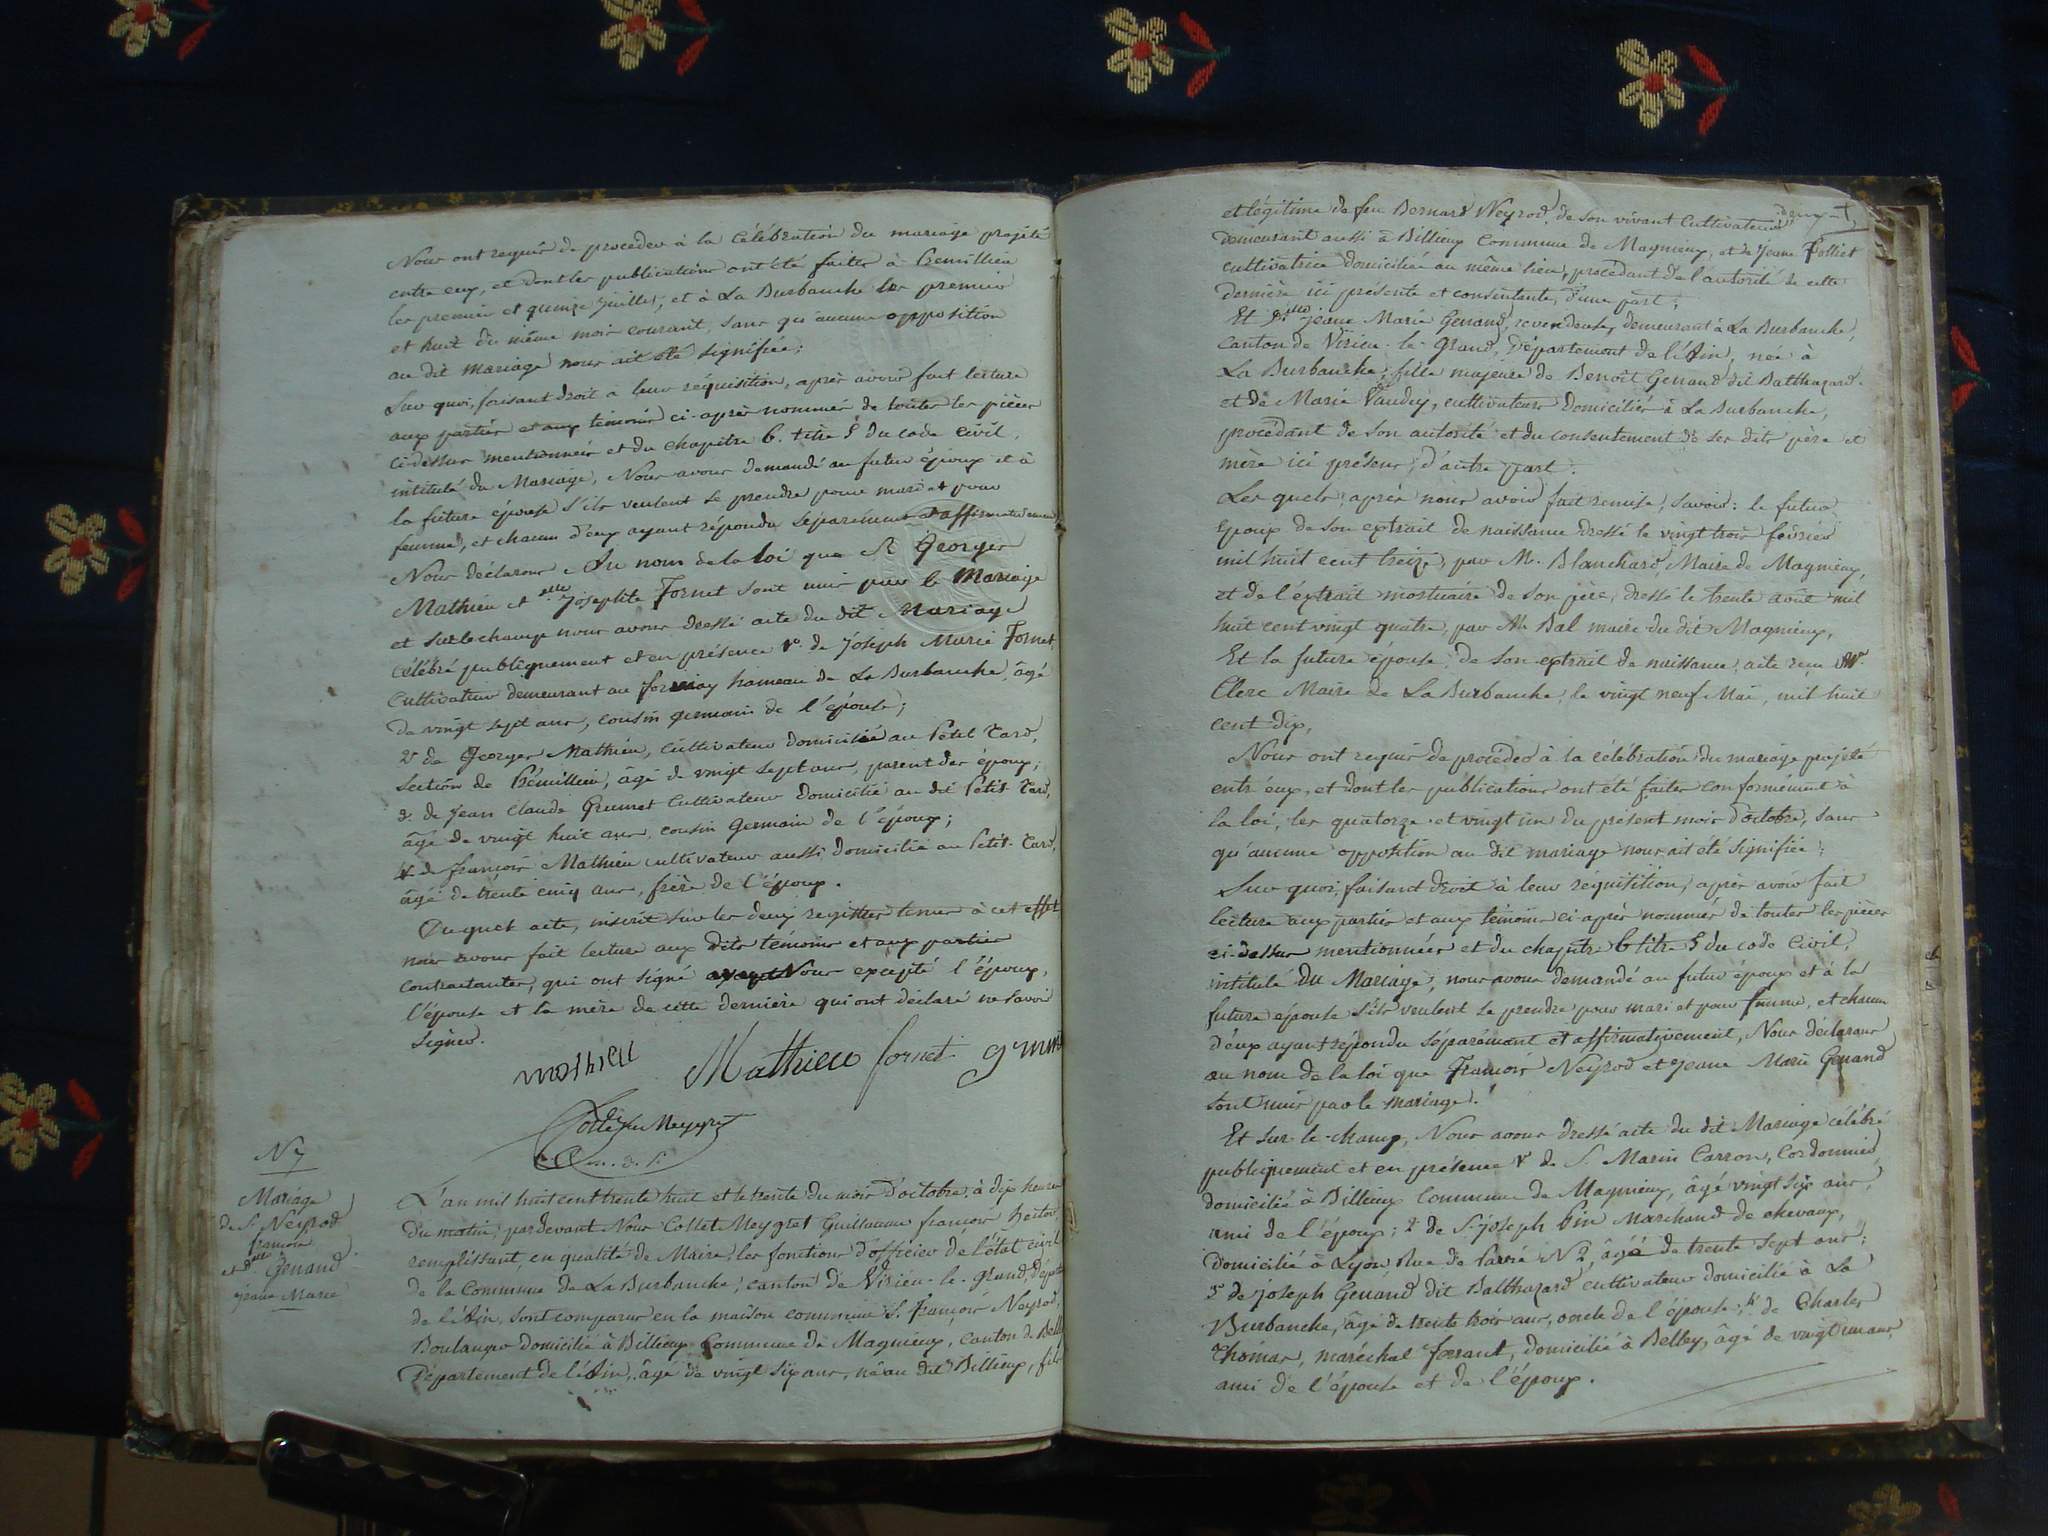 Nous ont requis de proceder à la Célébration du mariage projeté
entre eux, et dont les publications ont été faites à Prémillieu
les premier et quinze juillet, et à La Burbanche les premier
et huit du même mois courant, sans qu'aucune opposition
au dit mariage nous ait été signifiée;
Sur quoi, faisant droit à leur réquisition, après avoir fait lecture
aux parties et aux témoins ci-après nommés de toutes les pièces
ci-dessus mentionnées et du chapitre 6. titre 5 du code civil,
intitulé du Mariage, Nous avons demandé au futur époux et à
la future épouse s'ils veulent se prendre pour mari et pour
femme, et chacun d'eux ayant répondu séparément et affirmativement
Nous déclarons Au nom de la loi que Sr. Georges
Mathieu et delle Josephte Fornet sont unis par le Mariage
et sur le champ nous avons dressé acte du dit Mariage
célébré publiquement et en présence 1°. de Joseph Marie Fornet,
Cultivateur demeurant au hameau de La Burbanche, âgé
de vingt sept ans, cousin germain de l'épouse;
2° de Georges Mathieu, cultivateur domicilié au Petit Tard,
section de Prémillieu, âgé de vingt sept ans, parent des époux;
3. de Jean Claude Grumet Cultivateur domicilié au dit Petit Tard,
âgé de vingt huit ans cousin Germain de l'époux;
4 de françois Mathieu cultivateur aussi domicilié au Petit Tard,
âgé de trente cinq ans, frère de l'époux.
Duquel acte, inscrit sur les deux registres tenus à cet effet
nous avons fait lecture aux dits témoins et aux parties
contractantes, qui ont signé avec Nous excepté l'époux,
l'épouse et la mère de cette dernière qui ont déclaré ne savoir
signer.
mathieu Mathieu fornet
Collet Meygret
N 7
Mariage
de Sr Neyrod
françois
et delle Genand
jeane Marie
L'an mil huit cent trente huit et le trente du mois d'octobre, à dix heures
du matin, pardevant Nous Collet Meygret Guillaume françois hector,
remplissant, en qualité de Maire, les fonctions d'officier de l'état civil
de la Commune de La Burbanche, canton de Virieu-le-Grand, départ
de l'Ain, sont comparus en la maison commune S. François Neyrod,
Boulanger domicilié à Billieux Commune de Magnieux, canton de Belley
Département de l'Ain, âgé de vingt six ans, né au dit Billieux, fils
et légitime de feu Bernard Neyrod, de son vivant Cultivateur
demeurant aussi à Billieux Commune de Magnieux, et de Jeane Polliet
cultivatrice domiciliée au même lieu, procédant de l'autorité de cette
dernière ici présente et consentante, d'une part;
Et Delle jeane Marie Genand, revendeuse, demeurant à La Burbanche,
Canton de Virieu-le-Grand, Département de l'Ain, née à
La Burbanche, fille majeure de Benoît Genand dit Balthazard
et de Marie Vaudey, cultivateurs domiciliés à La Burbanche,
procédant de son autorité et du consentement de ses dits père et
mère ici présens, d'autre part.
Les quels, après nous avoir fait remise, savoir: le futur
Epoux de son extrait de naissance dressé le vingt trois février
mil huit cent treize, par M. Blanchard, Maire de Magnieux,
et de l'extrait mortuaire de son père, dressé le trente août mil
huit cent vingt quatre, par M. Bal maire du dit Magnieux,
Et la future épouse, de son extrait de naissance, acte reçu Mr.
Clerc Maire de La Burbanche, le vingt neuf Mai, mil huit
cent dix,
Nous ont requis de procéder à la célébration du mariage projeté
entr'eux, et dont les publications ont été faites conformément à
la loi, les quatorze et vingt un du présent mois d'octobre, sans
qu'aucune opposition au dit mariage nous ait été signifiée;
Sur quoi, faisant droit à leur réquisition, après avoir fait
lecture aux parties et aux témoins ci-après nommés de toutes les pièces
ci-dessus mentionnées et du chapitre 6 titre 5 du code Civil,
intitulé du Mariage, nous avons demandé au futur époux et à la
future épouse s'ils veulent se prendre pour mari et pour femme, et chacun
d'eux ayant répondu séparément et affirmativement, Nous déclarons
au nom de la loi que François Neyrod et Jeane Marie Genand
sont unis par le mariage.
Et sur-le-champ, Nous avons dressé acte du dit Mariage célébré
publiquement et en présence 1° de S. Marin Carron, Cordonnier,
domicilié à Billieux Commune de Magnieux, âgé vingt six ans,
ami de l'époux; 2° de S. joseph Pin Marchand de chevaux,
Domicilié à Lyon, Rue de N° 2, âgé de trente sept ans;
3° de joseph Genand dit Balthazard cultivateur domicilié à La
Burbanche, âgé de trente trois ans, oncle de l'épouse; 4° de Charles
Thomas, maréchal ferrant, domicilié à Belley, âgé de vingt un ans,
ami de l'épouse et de l'époux.